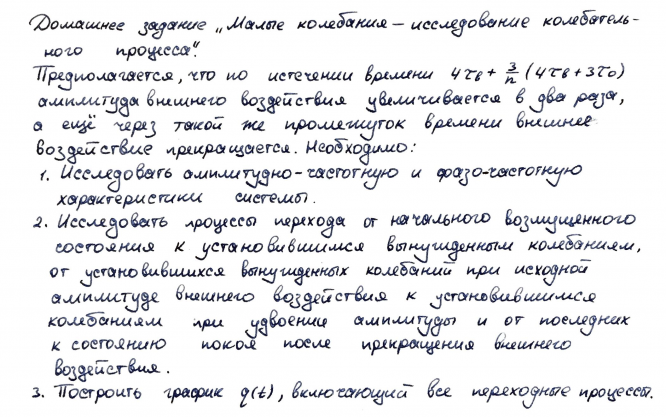 Домашнее задание „Малые колебания – исследование колебатель-
ного процесса".
Предполагается, что по истечении времени 4τв + 3/n (4τв + 3τ₀)
амплитуда внешнего воздействия увеличивается в два раза,
а ещё через такой же промежуток времени внешнее
воздействие прекращается. Необходимо:
1. Исследовать амплитудно-частотную и фазо-частотную
характеристики системы.
2. Исследовать процессы перехода от начального возмущенного
состояния к установившимся вынужденным колебаниям,
от установившихся вынужденных колебаний при исходной
амплитуде внешнего воздействия к установившимся
колебаниям при удвоении амплитуды и от последних
к состоянию покоя после прекращения внешнего
воздействия.
3. Построить график q(t), включающий все переходные процессы.